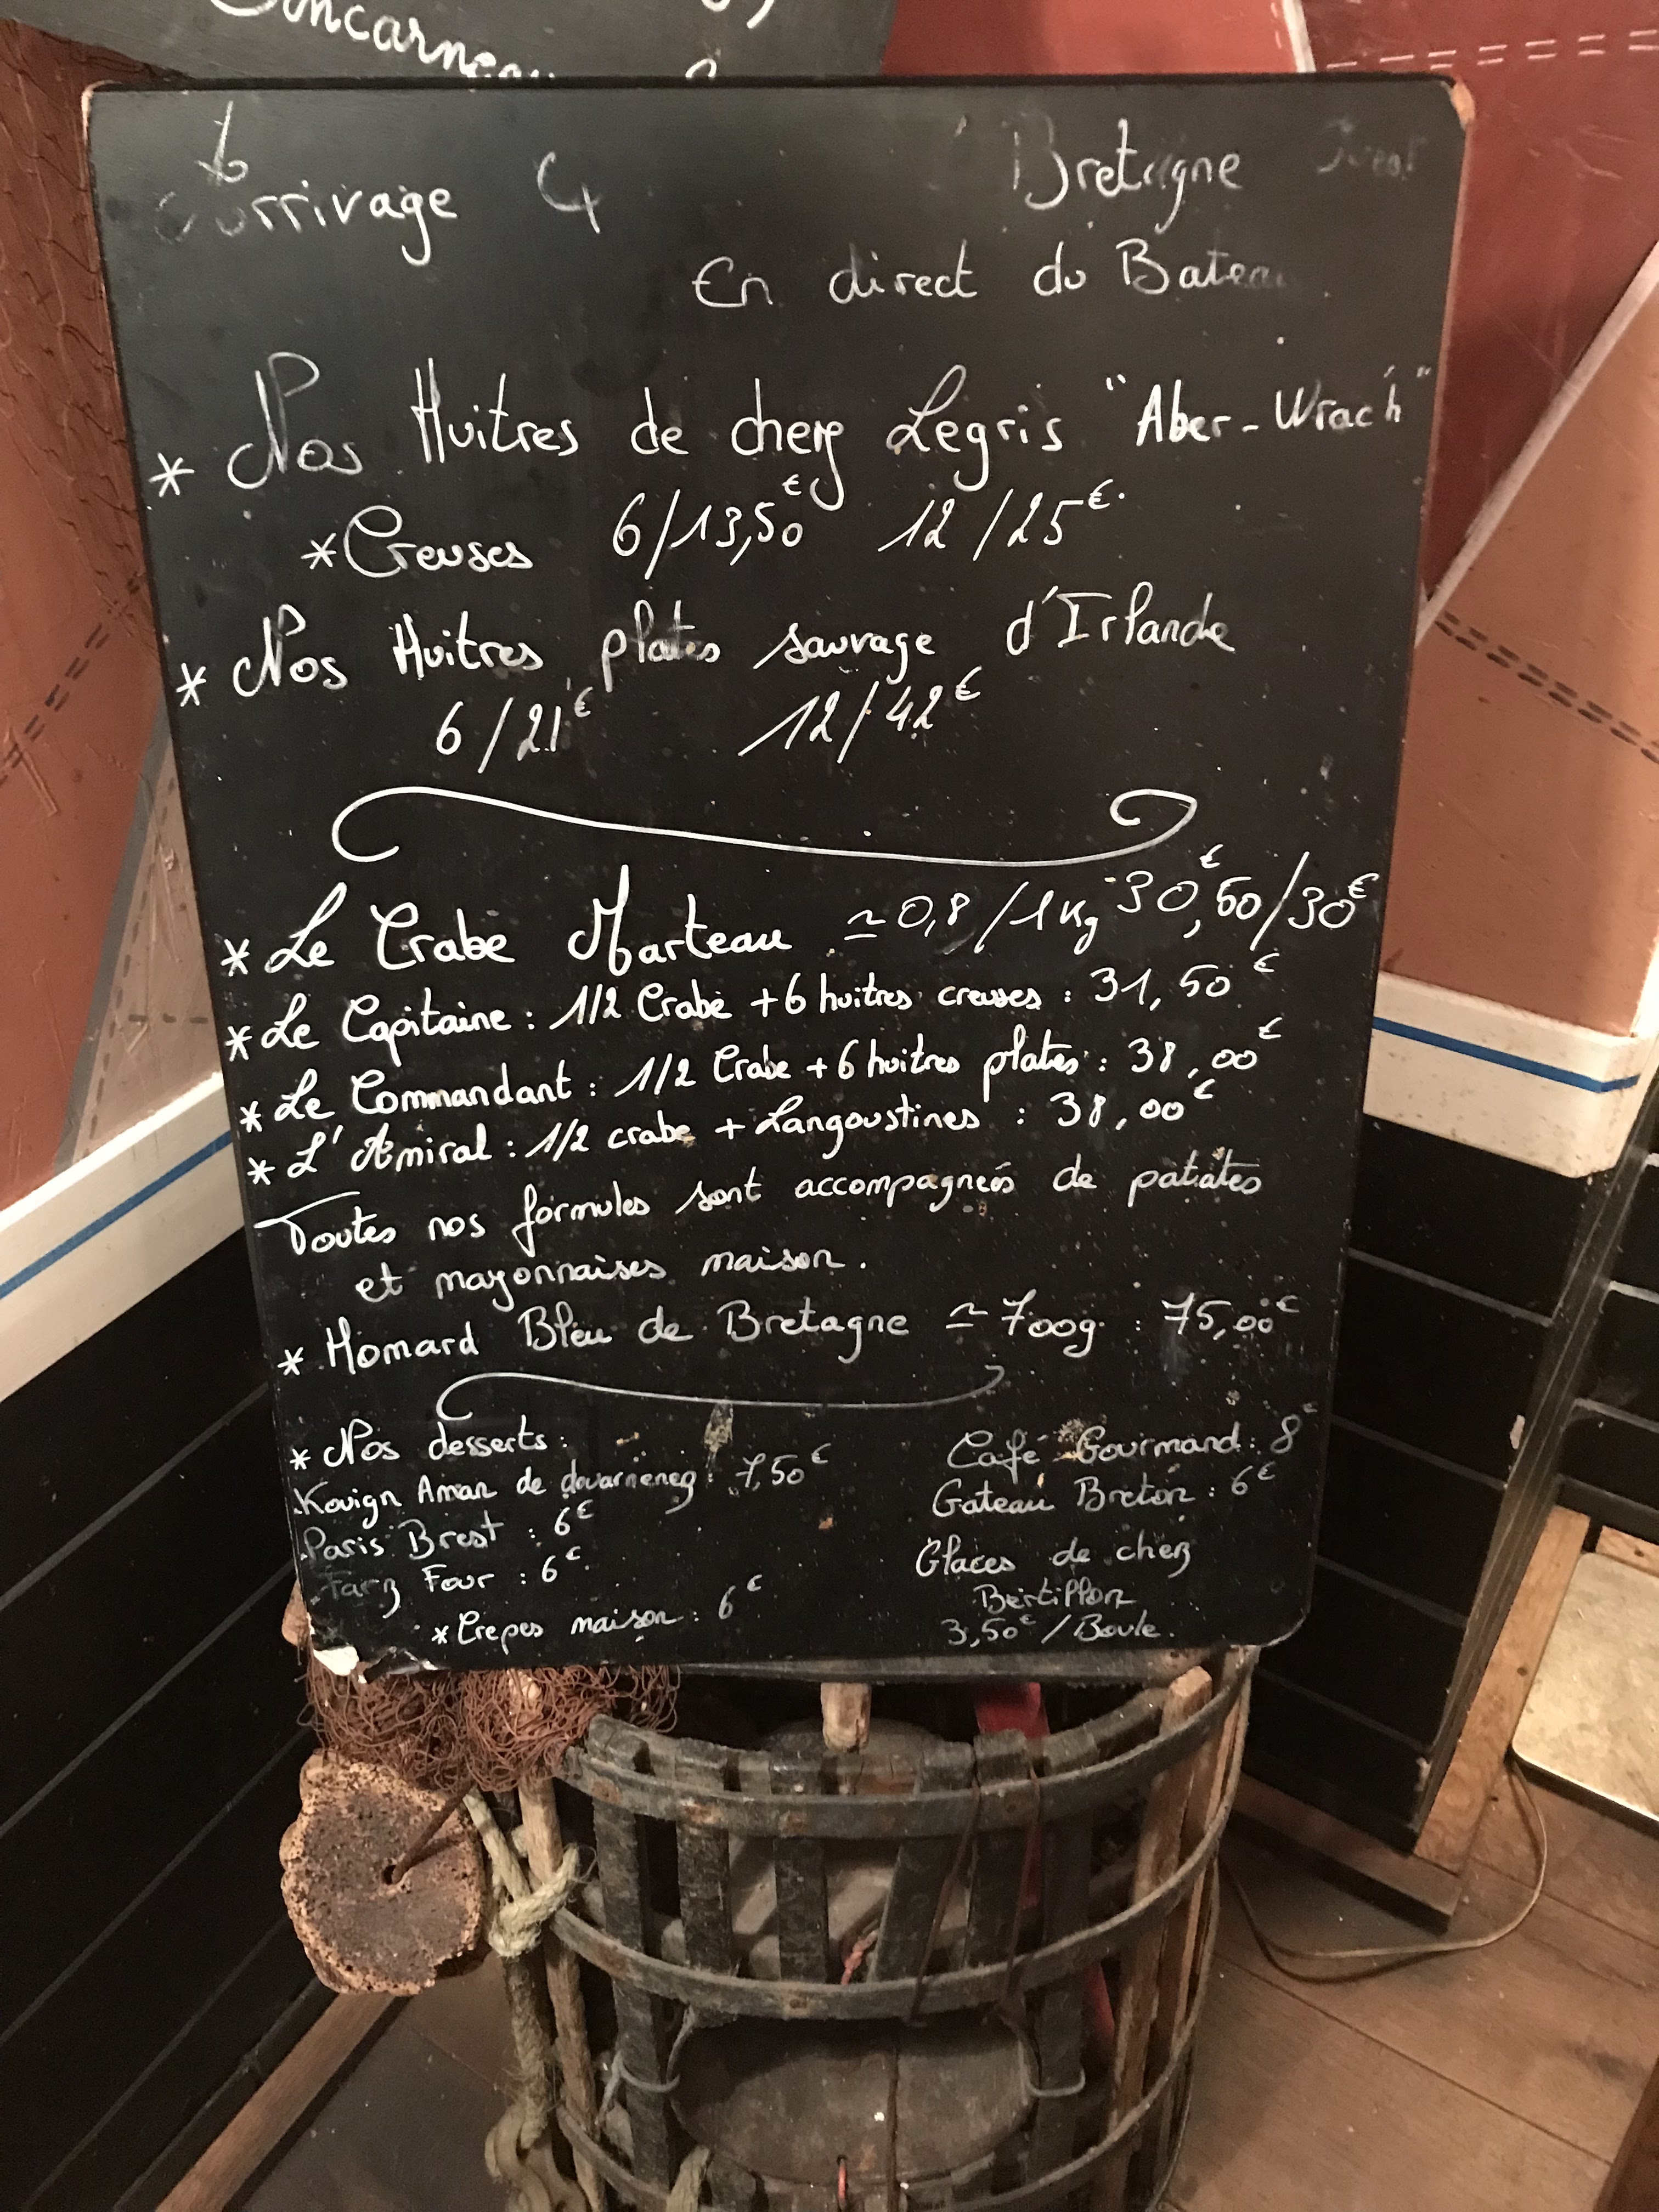 Concarneau
Arrivage
Bretagne
En direct du Bateau
* Nos Huitres de chez Legris "Aber-Wrac'h"
*Creuses 6/13,50€ 12/25€.
* Nos Huitres plates sauvage d'Irlande
6/21€ 12/42€
* Le Crabe Marteau ≃ 0,8/1Kg 30,50€/30€
* Le Capitaine : 1/2 Crabe + 6 huitres creuses : 31,50€
* Le Commandant : 1/2 Crabe + 6 huitres plates : 38,00€
* L'Amiral : 1/2 crabe + Langoustines : 38,00€
Toutes nos formules sont accompagnées de patates
et mayonnaises maison.
* Homard Bleu de Bretagne ≃ 700g : 75,00€
* Nos desserts :
Kouign Aman de douarnenez : 7,50€
Paris Brest : 6€
Farz Four : 6€
*Crepes maison : 6€
Café Gourmand : 8€
Gateau Breton : 6€
Glaces de chez
Bertillon
3,50€/Boule.